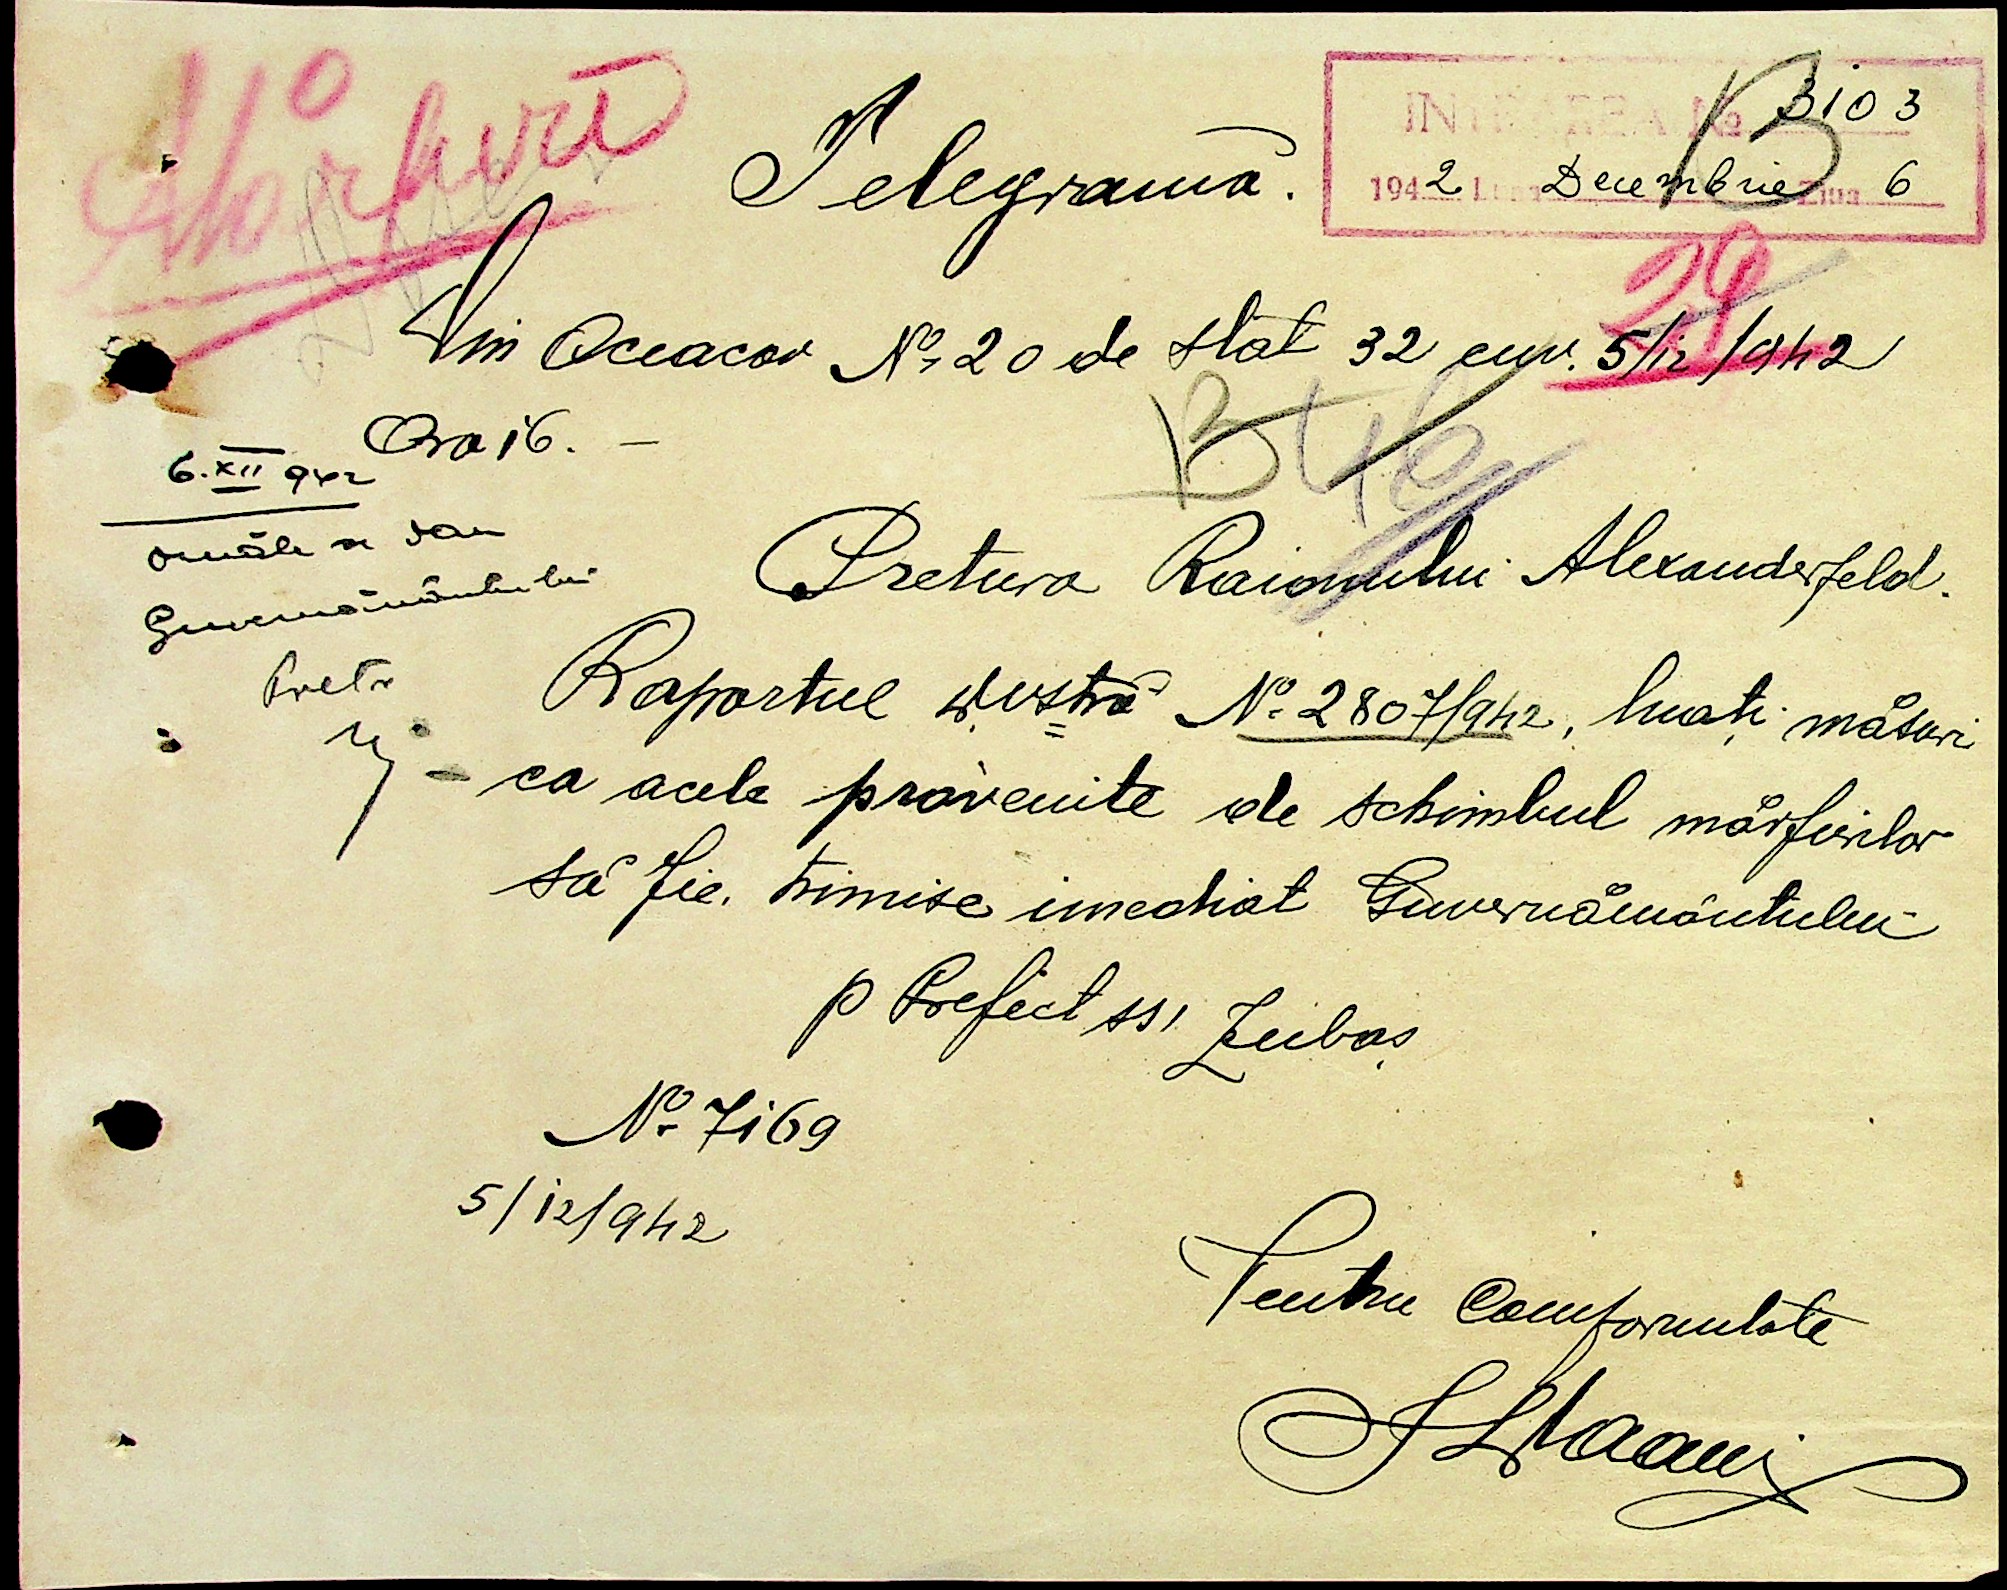 Mărfuri
Telegramă.
INTRAREA No. 3103
1942 Luna Decembrie Ziua 6
29
Din Oceacov No. 20 de stat 32 cuv. 5/12/942
Ora 16. –
6.XII 942
Guvernământului
Pretor
Pretura Raionului Alexanderfeld.
Raportul dvstră No. 2807/942, luați măsuri
ca acele provenite de schimbul mărfurilor
să fie trimise imediat Guvernământului
p Prefect ss,
No. 7169
5/12/942
Pentru Conformitate